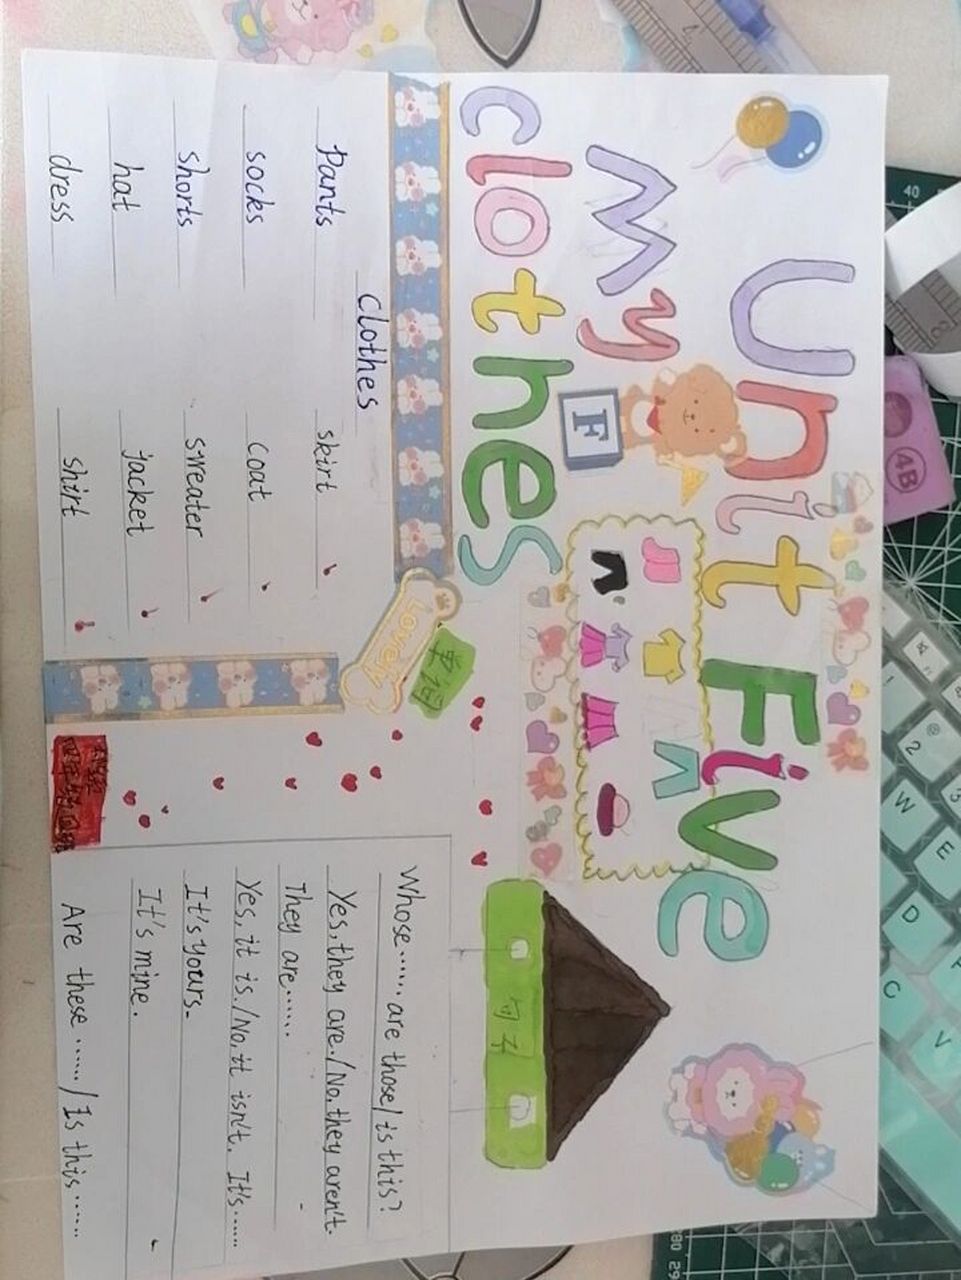 Unit Five
My
clothes
F
Lovely
单词
clothes
pants
skirt
socks
coat
shorts
sweater
hat
jacket
dress
shirt
句子
Whose...... are those/is this?
Yes, they are./No, they aren't.
They are......
Yes, it is./No, it isn't. It's......
It's yours.
It's mine.
Are these ....../Is this......
4B
40
80 29
2
3
W
E
D
C
V